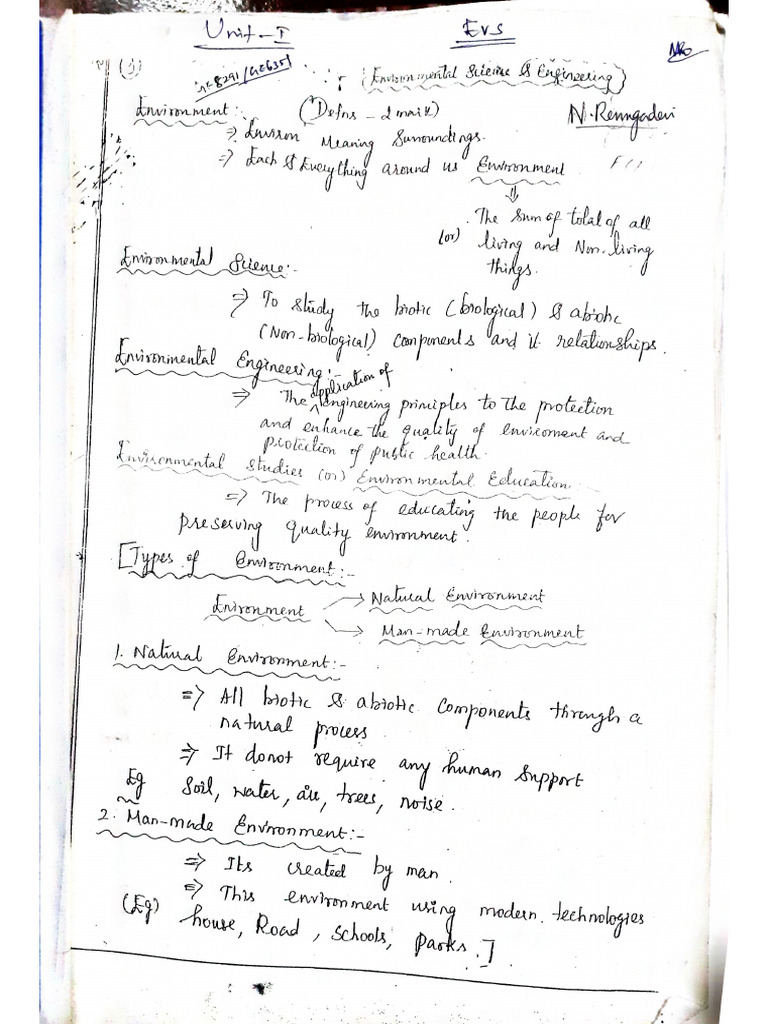 Unit-I EVS
(1) GE8291/GE6351
(Environmental Science & Engineering)
Environment:- (Defns - 2 mark) N. Renngadevi
⇒ Environ Meaning Surroundings.
⇒ Each & Everything around us Environment
⇓
(or) The sum of total of all
living and Non-living
things.
Environmental Science:-
⇒ To study the biotic (biological) & abiotic
(Non-biological) components and it relationships.
Environmental Engineering:-
⇒ The application of engineering principles to the protection
and enhance the quality of enviroment and
protection of public health.
Environmental Studies (or) Environmental Education
⇒ The process of educating the people for
preserving quality environment.
[Types of Environment:-
Enironment → Natural Environment
→ Man-made Environment
1. Natural Environment:-
⇒ All biotic & abiotic components through a
natural process
⇒ It donot require any human support
Eg Soil, water, air, trees, noise.
2. Man-made Environment:-
⇒ Its created by man.
⇒ This environment using modern technologies
(Eg) house, Road, schools, parks.]